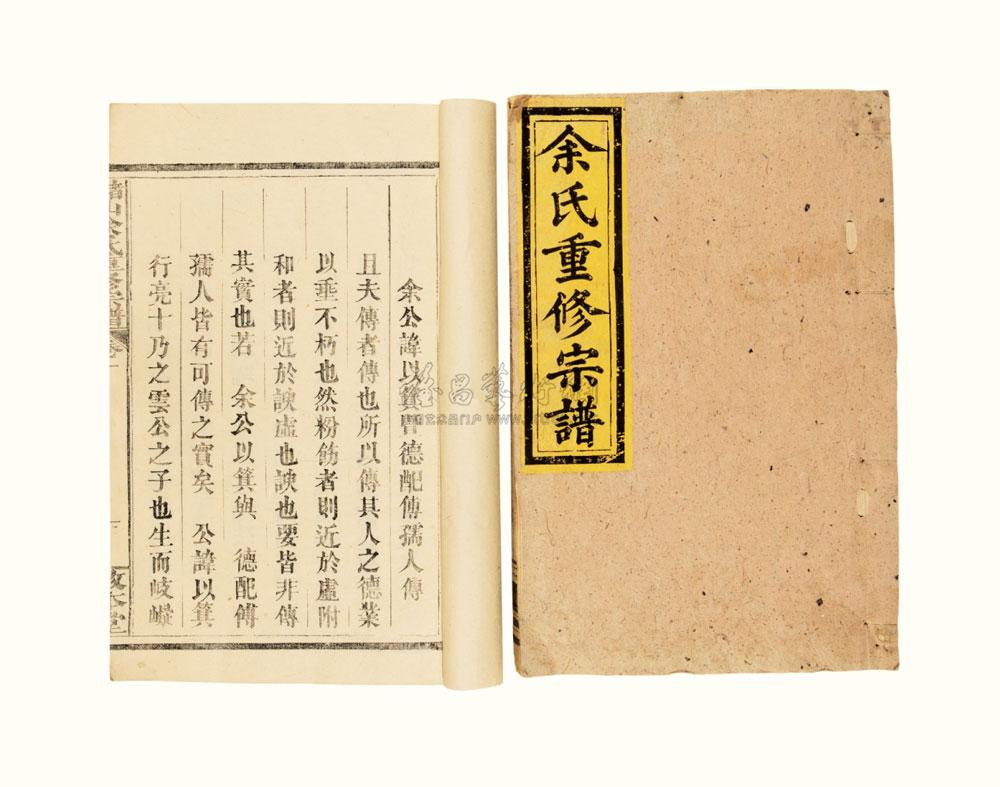 余氏重修宗譜
余公諱以箕曁德配傅孺人傳
且夫傳者傳也所以傳其人之德業
以垂不朽也然粉飾者則近於虛附
和者則近於諛虛也諛也要皆非傳
其實也若 余公以箕與 德配傅
孺人皆有可傳之實矣 公諱以箕
行亮十乃之雲公之子也生而岐嶷
余氏重修宗譜 卷
敦本堂